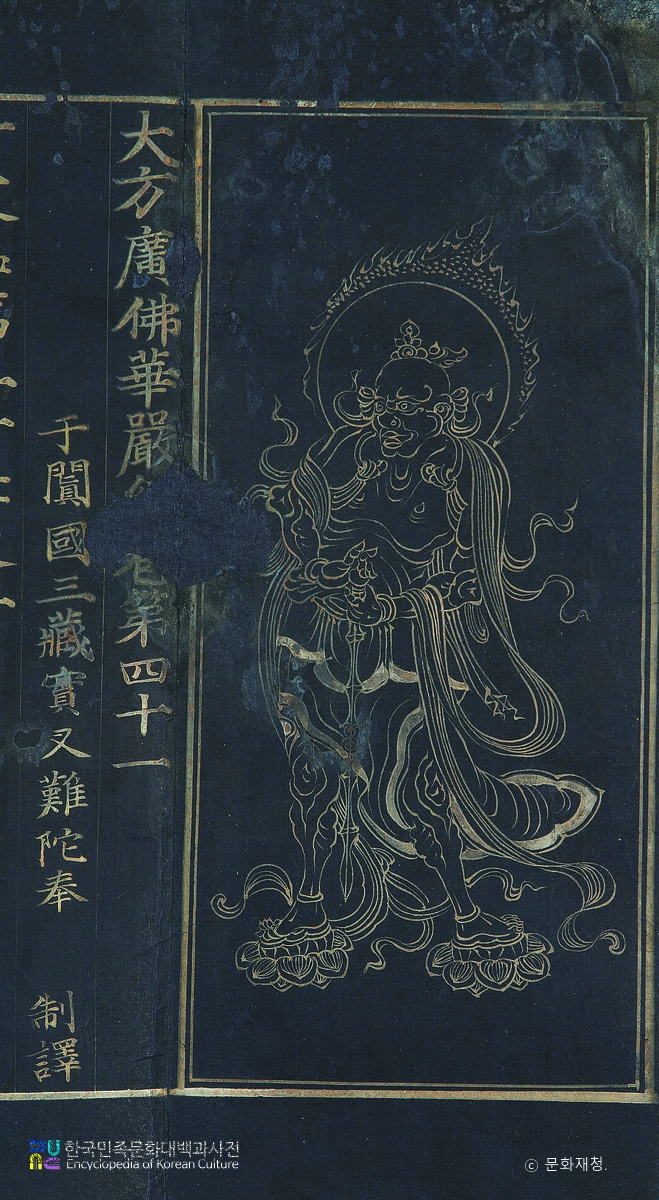 大方廣佛華嚴 第四十一
于闐國三藏實叉難陀奉 制譯
한국민족문화대백과사전
Encyclopedia of Korean Culture
© 문화재청.